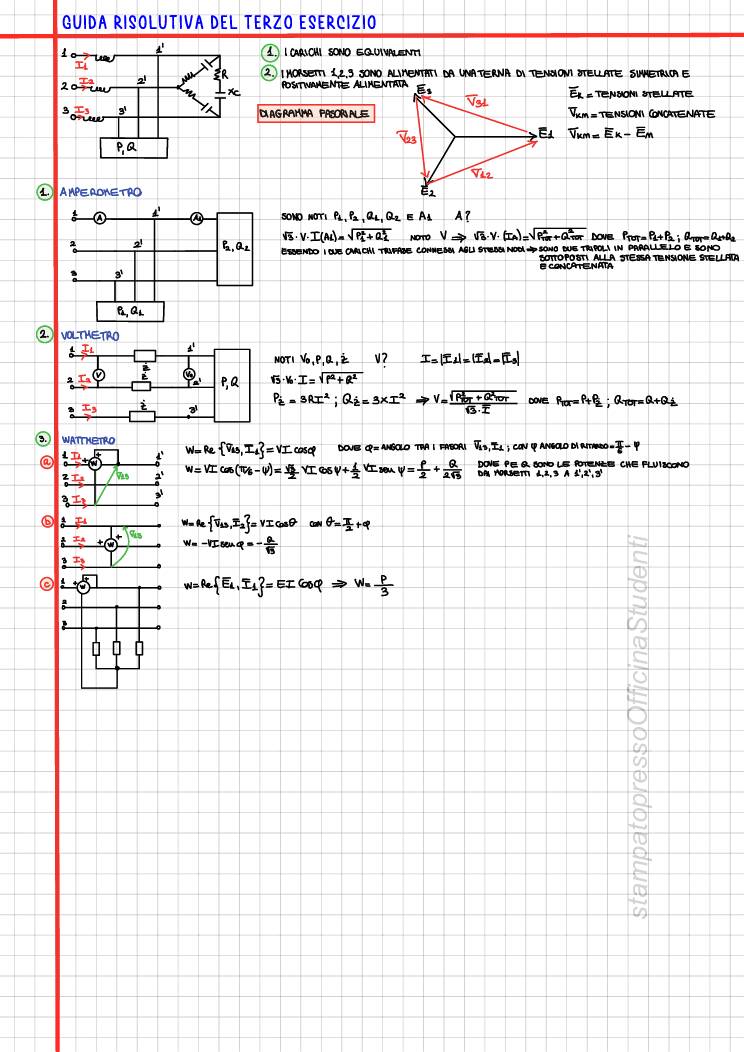 GUIDA RISOLUTIVA DEL TERZO ESERCIZIO
1. I CARICHI SONO EQUIVALENTI
2. I MORSETTI 1,2,3 SONO ALIMENTATI DA UNA TERNA DI TENSIONI STELLATE SIMMETRICA E
POSITIVAMENTE ALIMENTATA
1 I1 1'
2 I2 2'
3 I3 3'
R
XC
P, Q
DIAGRAMMA FASORIALE
E̅3
V̅31
E̅1
V̅23
V̅12
E̅2
E̅k = TENSIONI STELLATE
V̅KM = TENSIONI CONCATENATE
V̅KM = E̅K - E̅M
1. AMPEROMETRO
1 A 1' A1
2 2'
3 3'
P2, Q2
P1, Q1
SONO NOTI P1, P2, Q1, Q2 E A1 A?
√3·V·I(A1) = √(P2² + Q2²) NOTO V ⇒ √3·V·(IA) = √(P²TOT + Q²TOT) DOVE PTOT = P1+P2 ; QTOT = Q1+Q2
ESSENDO I DUE CARICHI TRIFASE CONNESSI AGLI STESSI NODI ⇒ SONO DUE TRIPOLI IN PARALLELO E SONO
SOTTOPOSTI ALLA STESSA TENSIONE STELLATA
E CONCATENATA
2. VOLTMETRO
1 I1 Ż 1'
V V0
2 I2 Ż 2'
3 I3 Ż 3'
P, Q
NOTI V0, P, Q, Ż V? I = |I̅1| = |I̅2| = |I̅3|
√3·V0·I = √(P² + Q²)
PŻ = 3RI² ; QŻ = 3XI² ⇒ V = √(P²TOT + Q²TOT) / √3·I DOVE PTOT = P+PŻ ; QTOT = Q+QŻ
3. WATTMETRO
a
1 I1 W 1'
2 I2 V̅13 2'
3 I3 3'
W = Re {V̅13, I̅1} = VI cosφ DOVE φ = ANGOLO TRA I FASORI V̅13, I̅1 ; CON ψ ANGOLO DI RITARDO = π/6 - ψ
W = VI cos(π/6 - ψ) = √3/2 VI cos ψ + 1/2 VI sen ψ = P/2 + Q/2√3 DOVE P E Q SONO LE POTENZE CHE FLUISCONO
DAI MORSETTI 1,2,3 A 1',2',3'
b
1 I1
2 I2 W V̅13
3
W = Re{V̅13, I̅2} = VI cosθ CON θ = π/2 + φ
W = -VI sen φ = - Q/√3
c
1 W
2
3
W = Re{E̅1, I̅1} = EI cosφ ⇒ W = P/3
stampatopressoOfficinaStudenti